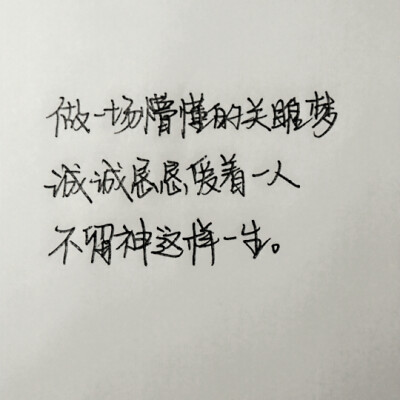 做一场懵懂的关雎梦
诚诚恳恳爱着一人
不留神这样一生。